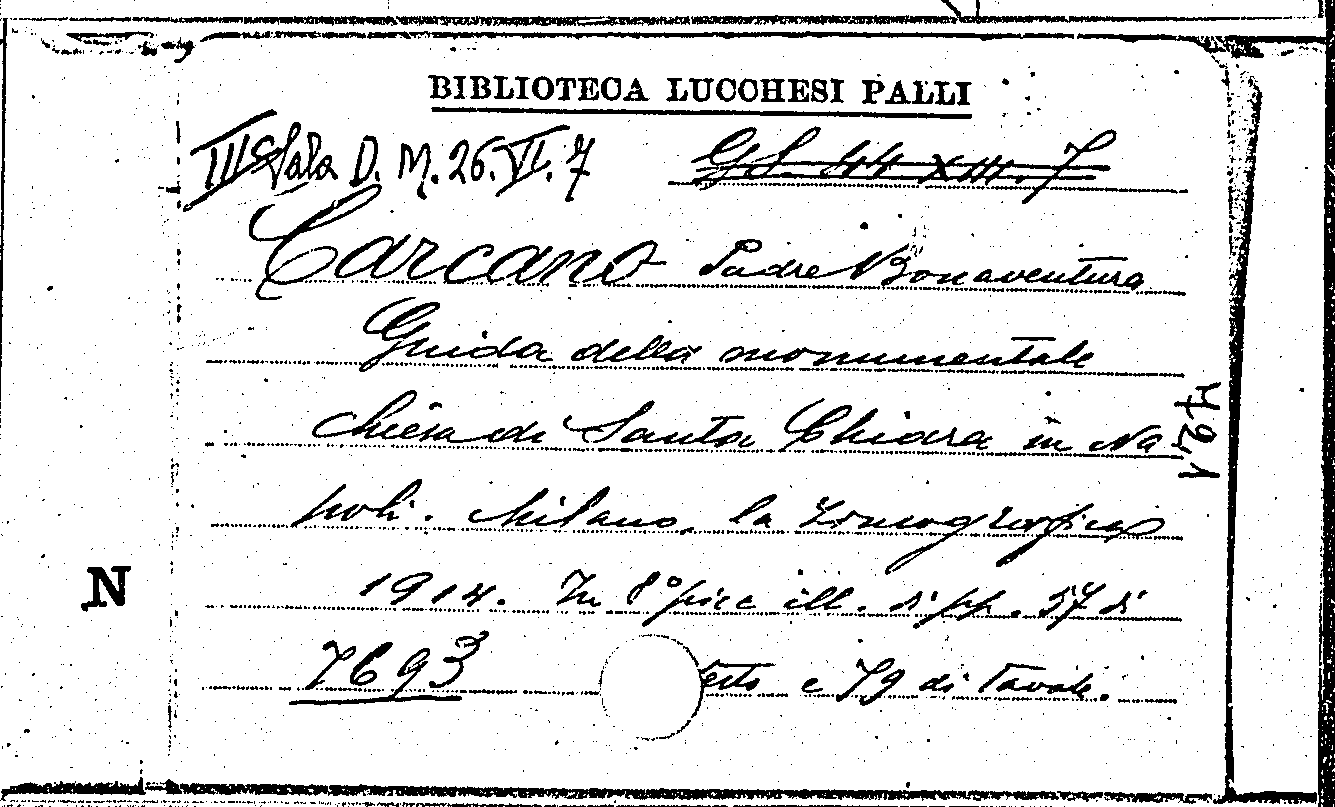 BIBLIOTECA LUCCHESI PALLI
III Sala D. M. 26. VI. 7
GS. 44 XIII. 7
Carcano Padre Bonaventura
Guida della monumentale
chiesa di Santa Chiara in Na
poli. Milano, la Zincografica
1914. In 8° picc ill. di pp. 57 di
7693 testo e 79 di Tavole.
N